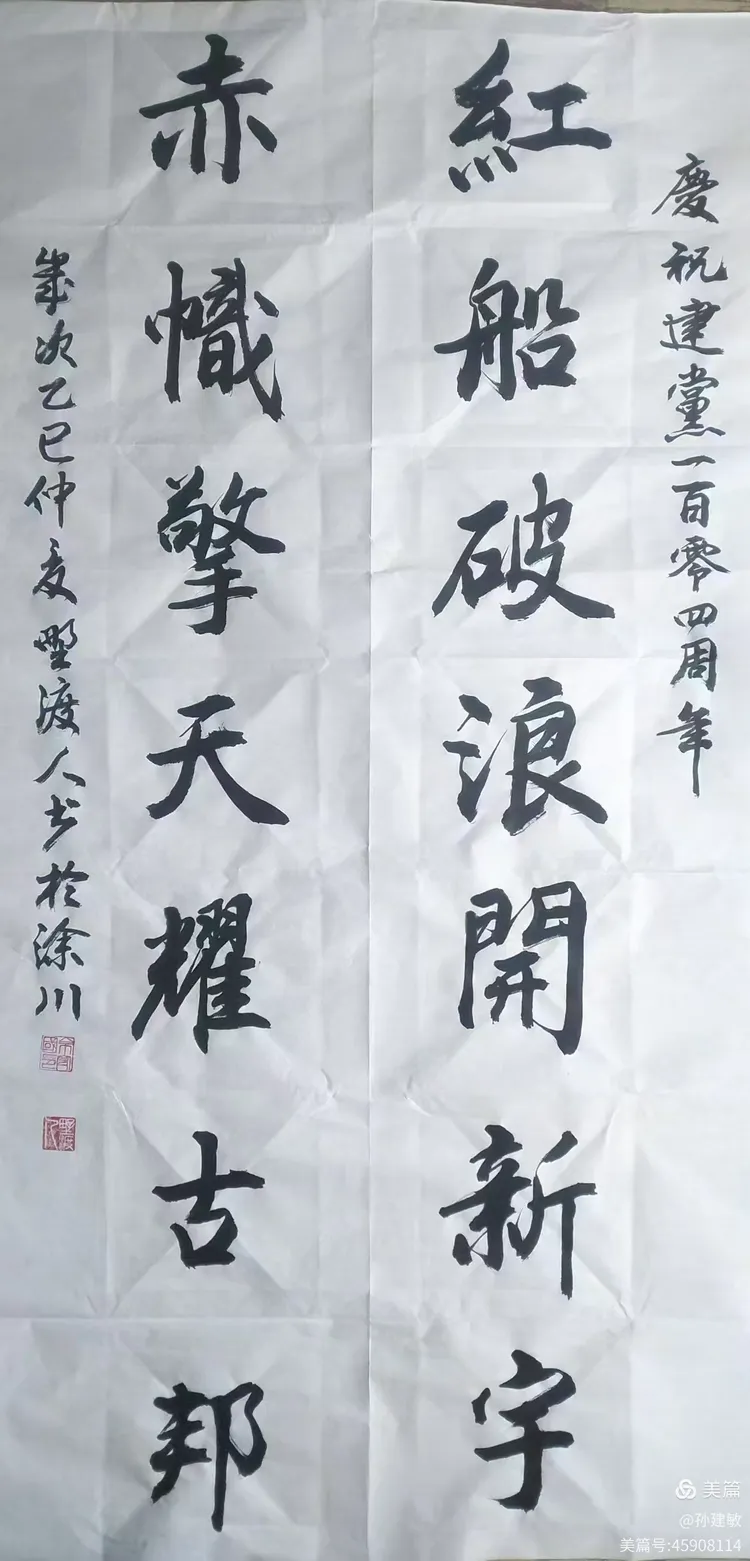 慶祝建黨一百零四周年
紅船破浪開新宇
赤幟擎天耀古邦
歲次乙巳仲夏野渡人书於涂川
美篇
@孙建敏
美篇号:45908114